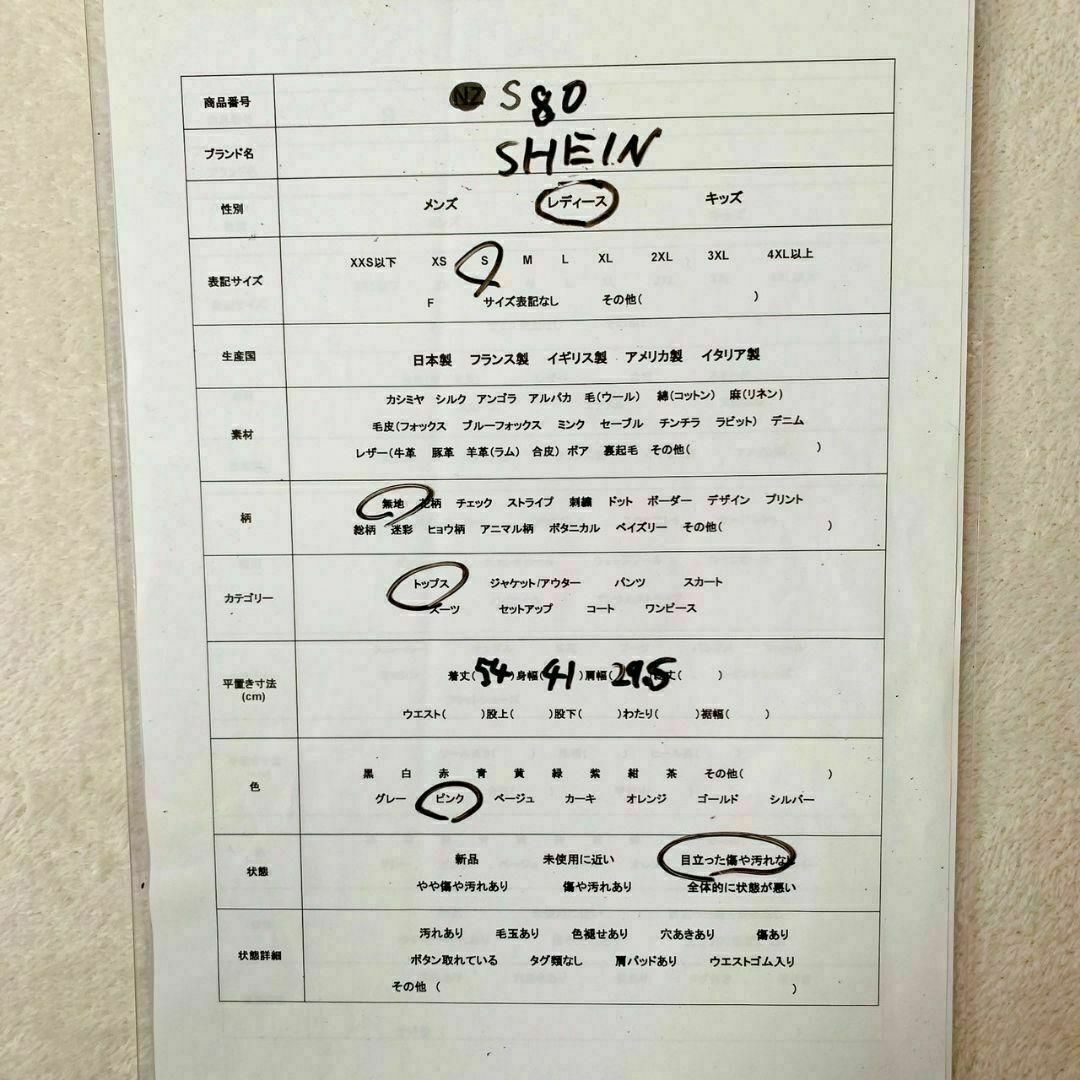 商品番号 NZ S80
ブランド名 SHEIN
性別 メンズ レディース キッズ
表記サイズ XXS以下 XS S M L XL 2XL 3XL 4XL以上
F サイズ表記なし その他( )
生産国 日本製 フランス製 イギリス製 アメリカ製 イタリア製
素材 カシミヤ シルク アンゴラ アルパカ 毛(ウール) 綿(コットン) 麻(リネン)
毛皮(フォックス ブルーフォックス ミンク セーブル チンチラ ラビット) デニム
レザー(牛革 豚革 羊革(ラム) 合皮) ボア 裏起毛 その他( )
柄 無地 花柄 チェック ストライプ 刺繍 ドット ボーダー デザイン プリント
総柄 迷彩 ヒョウ柄 アニマル柄 ボタニカル ペイズリー その他( )
カテゴリー トップス ジャケット/アウター パンツ スカート
スーツ セットアップ コート ワンピース
平置き寸法 (cm) 着丈(54)身幅(41)肩幅(29.5 丈( )
ウエスト( )股上( )股下( )わたり( )裾幅( )
色 黒 白 赤 青 黄 緑 紫 紺 茶 その他( )
グレー ピンク ベージュ カーキ オレンジ ゴールド シルバー
状態 新品 未使用に近い 目立った傷や汚れなし
やや傷や汚れあり 傷や汚れあり 全体的に状態が悪い
状態詳細 汚れあり 毛玉あり 色褪せあり 穴あきあり 傷あり
ボタン取れている タグ類なし 肩パッドあり ウエストゴム入り
その他 ( )